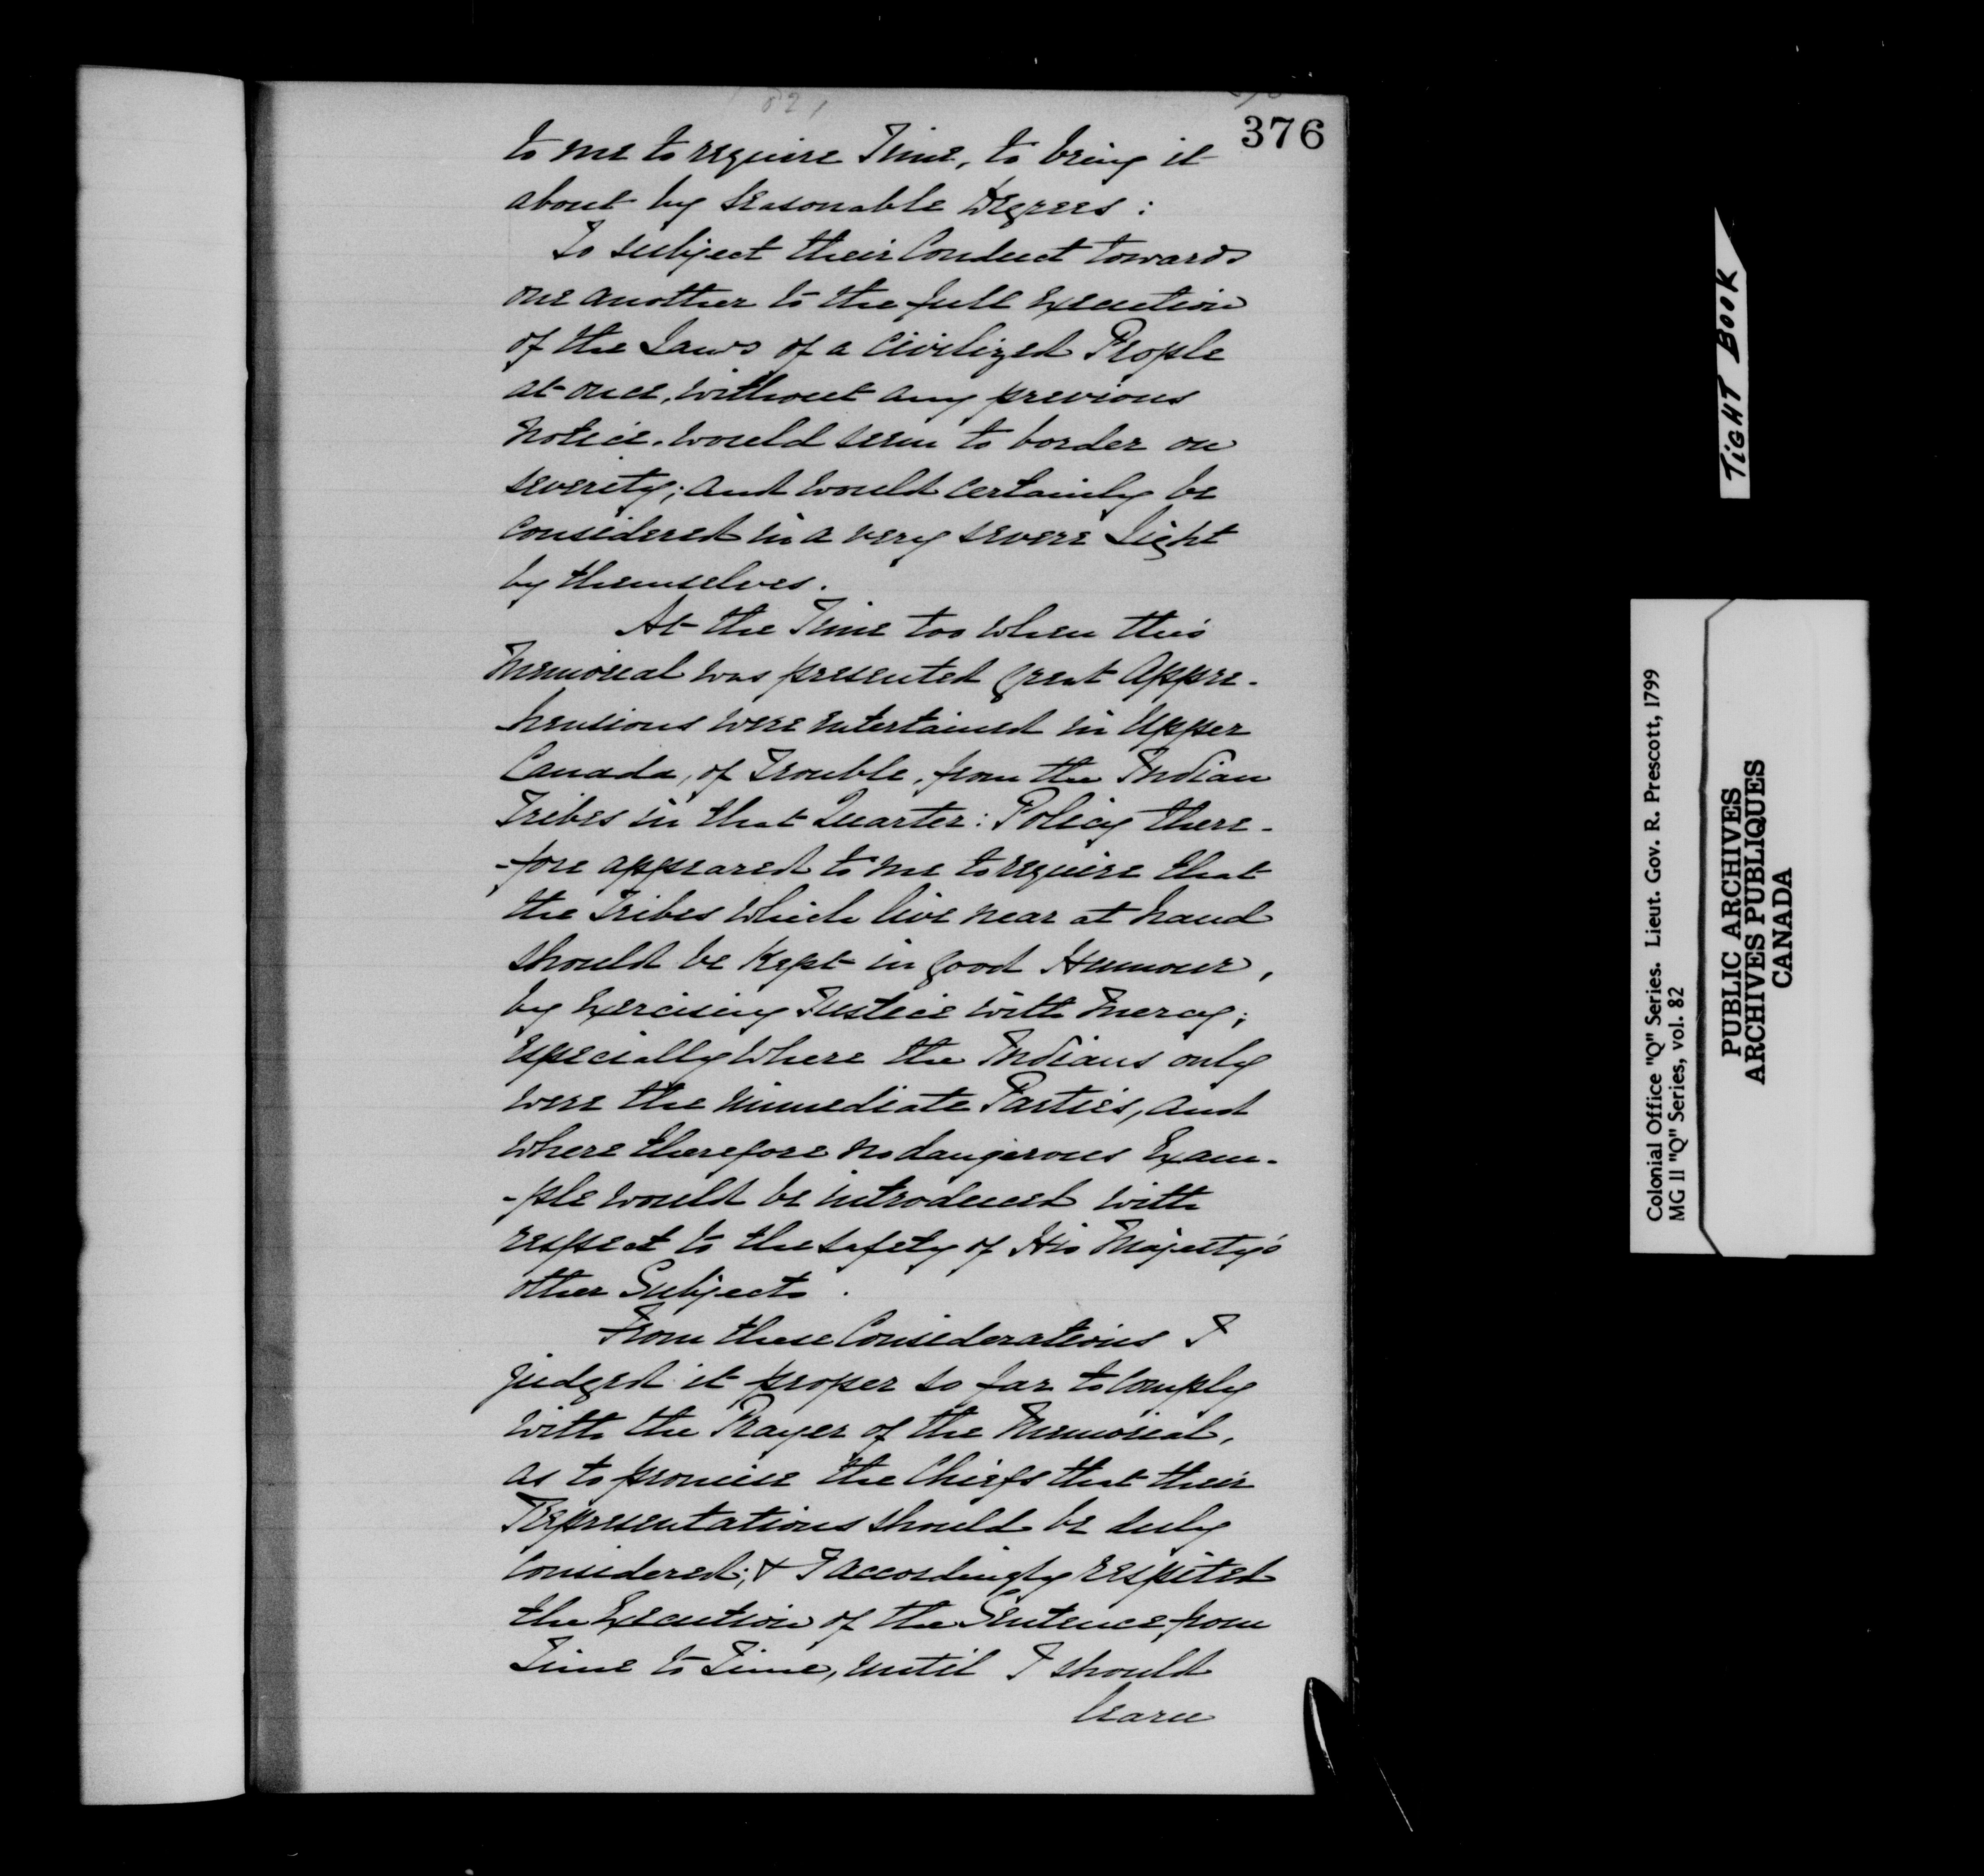 376
to me to require Time, to bring it
about by seasonable Degrees:
To subject their Conduct towards
one another to the full Execution
of the Laws of a Civilized People
at once, without any previous
Notice, would seem to border on
severity; and would certainly be
considered in a very severe Light
by themselves.
At the Time too when this
Memorial was presented great Appre-
hensions were entertained in Upper
Canada, of Trouble, from the Indian
Tribes in that Quarter: Policy there-
-fore appeared to me to require that
the Tribes which live near at hand
should be kept in good Humour,
by Exercising Justice with Mercy;
especially where the Indians only
were the immediate Parties, and
where therefore no dangerous Exam-
-ple would be introduced with
respect to the safety of His Majesty's
other Subjects.
From these Considerations I
judged it proper so far to comply
with the Prayer of the Memorial,
as to promise the Chiefs that their
Representations should be duly
considered; & I accordingly respited
the Execution of the Sentence from
Time to Time, until I should
learn
TIGHT BOOK
Colonial Office "Q" Series. Lieut. Gov. R. Prescott, 1799
MG 11 "Q" Series, vol. 82
PUBLIC ARCHIVES
ARCHIVES PUBLIQUES
CANADA